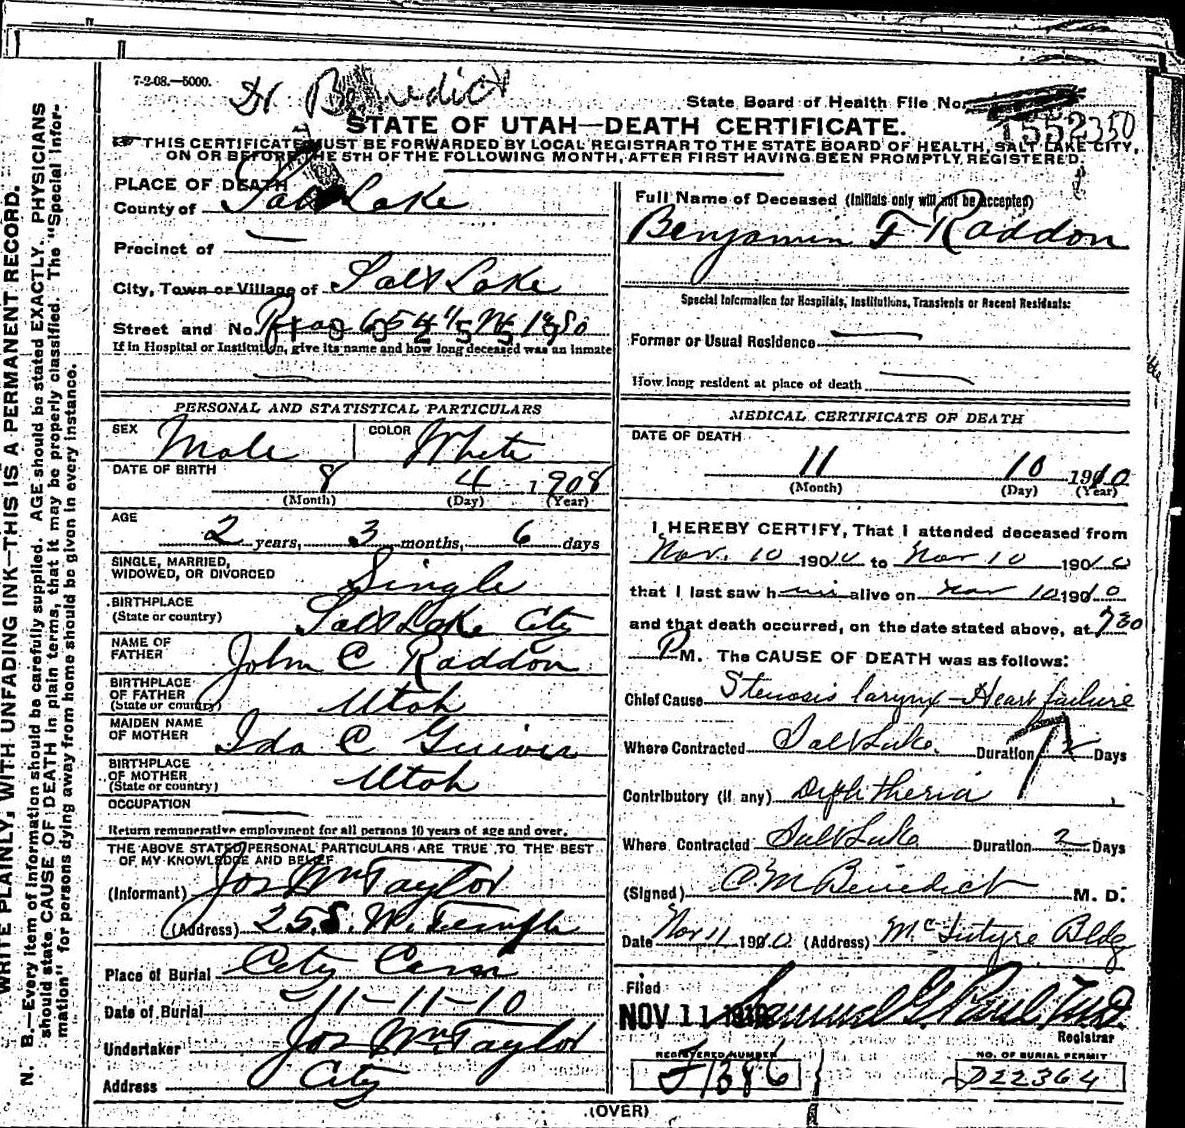 7-2-08.—5000.
Dr. Benedict
State Board of Health File No.
1552350
STATE OF UTAH—DEATH CERTIFICATE.
THIS CERTIFICATE MUST BE FORWARDED BY LOCAL REGISTRAR TO THE STATE BOARD OF HEALTH, SALT LAKE CITY,
ON OR BEFORE THE 5TH OF THE FOLLOWING MONTH, AFTER FIRST HAVING BEEN PROMPTLY REGISTERED.
PLACE OF DEATH
County of Salt Lake
Precinct of —
City, Town or Village of Salt Lake
Street and No.
If in Hospital or Institution, give its name and how long deceased was an inmate
—
PERSONAL AND STATISTICAL PARTICULARS
SEX Male COLOR White
DATE OF BIRTH 8 4 1908
(Month) (Day) (Year)
AGE
2 years, 3 months, 6 days
SINGLE, MARRIED,
WIDOWED, OR DIVORCED Single
BIRTHPLACE
(State or country) Salt Lake City
NAME OF
FATHER John C Raddon
BIRTHPLACE
OF FATHER
(State or country) Utah
MAIDEN NAME
OF MOTHER Ida C
BIRTHPLACE
OF MOTHER
(State or country) Utah
OCCUPATION —
Return remunerative employment for all persons 10 years of age and over.
THE ABOVE STATED PERSONAL PARTICULARS ARE TRUE TO THE BEST
OF MY KNOWLEDGE AND BELIEF
(Informant) Jos Wm Taylor
(Address) 25 S. W. Temple
Place of Burial City Cem
Date of Burial 11-11-10
Undertaker Jos Wm Taylor
Address City
Full Name of Deceased (Initials only will not be accepted)
Benjamin F Raddon
Special Information for Hospitals, Institutions, Transients or Recent Residents:
Former or Usual Residence —
How long resident at place of death —
MEDICAL CERTIFICATE OF DEATH
DATE OF DEATH
11 10 1910
(Month) (Day) (Year)
I HEREBY CERTIFY, That I attended deceased from
Nov. 10 1910 to Nov 10 1910
that I last saw him alive on Nov 10 1910
and that death occurred, on the date stated above, at 7 30
P M. The CAUSE OF DEATH was as follows:
Chief Cause Stenosis larynx – Heart failure
Where Contracted Salt Lake. Duration 2 Days
Contributory (if any) Diphtheria
Where Contracted Salt Lake Duration 2 Days
(Signed) C. M. Benedict M. D.
Date Nov 11 1910 (Address) McIntyre Bldg
Filed
NOV 11 1910 Samuel G. Paul, M.D.
Registrar
REGISTERED NUMBER
J1386
NO. OF BURIAL PERMIT
D22364
(OVER)
WRITE PLAINLY, WITH UNFADING INK—THIS IS A PERMANENT RECORD.
N. B.—Every item of information should be carefully supplied. AGE should be stated EXACTLY. PHYSICIANS
should state CAUSE OF DEATH in plain terms, that it may be properly classified. The "Special Infor-
mation" for persons dying away from home should be given in every instance.